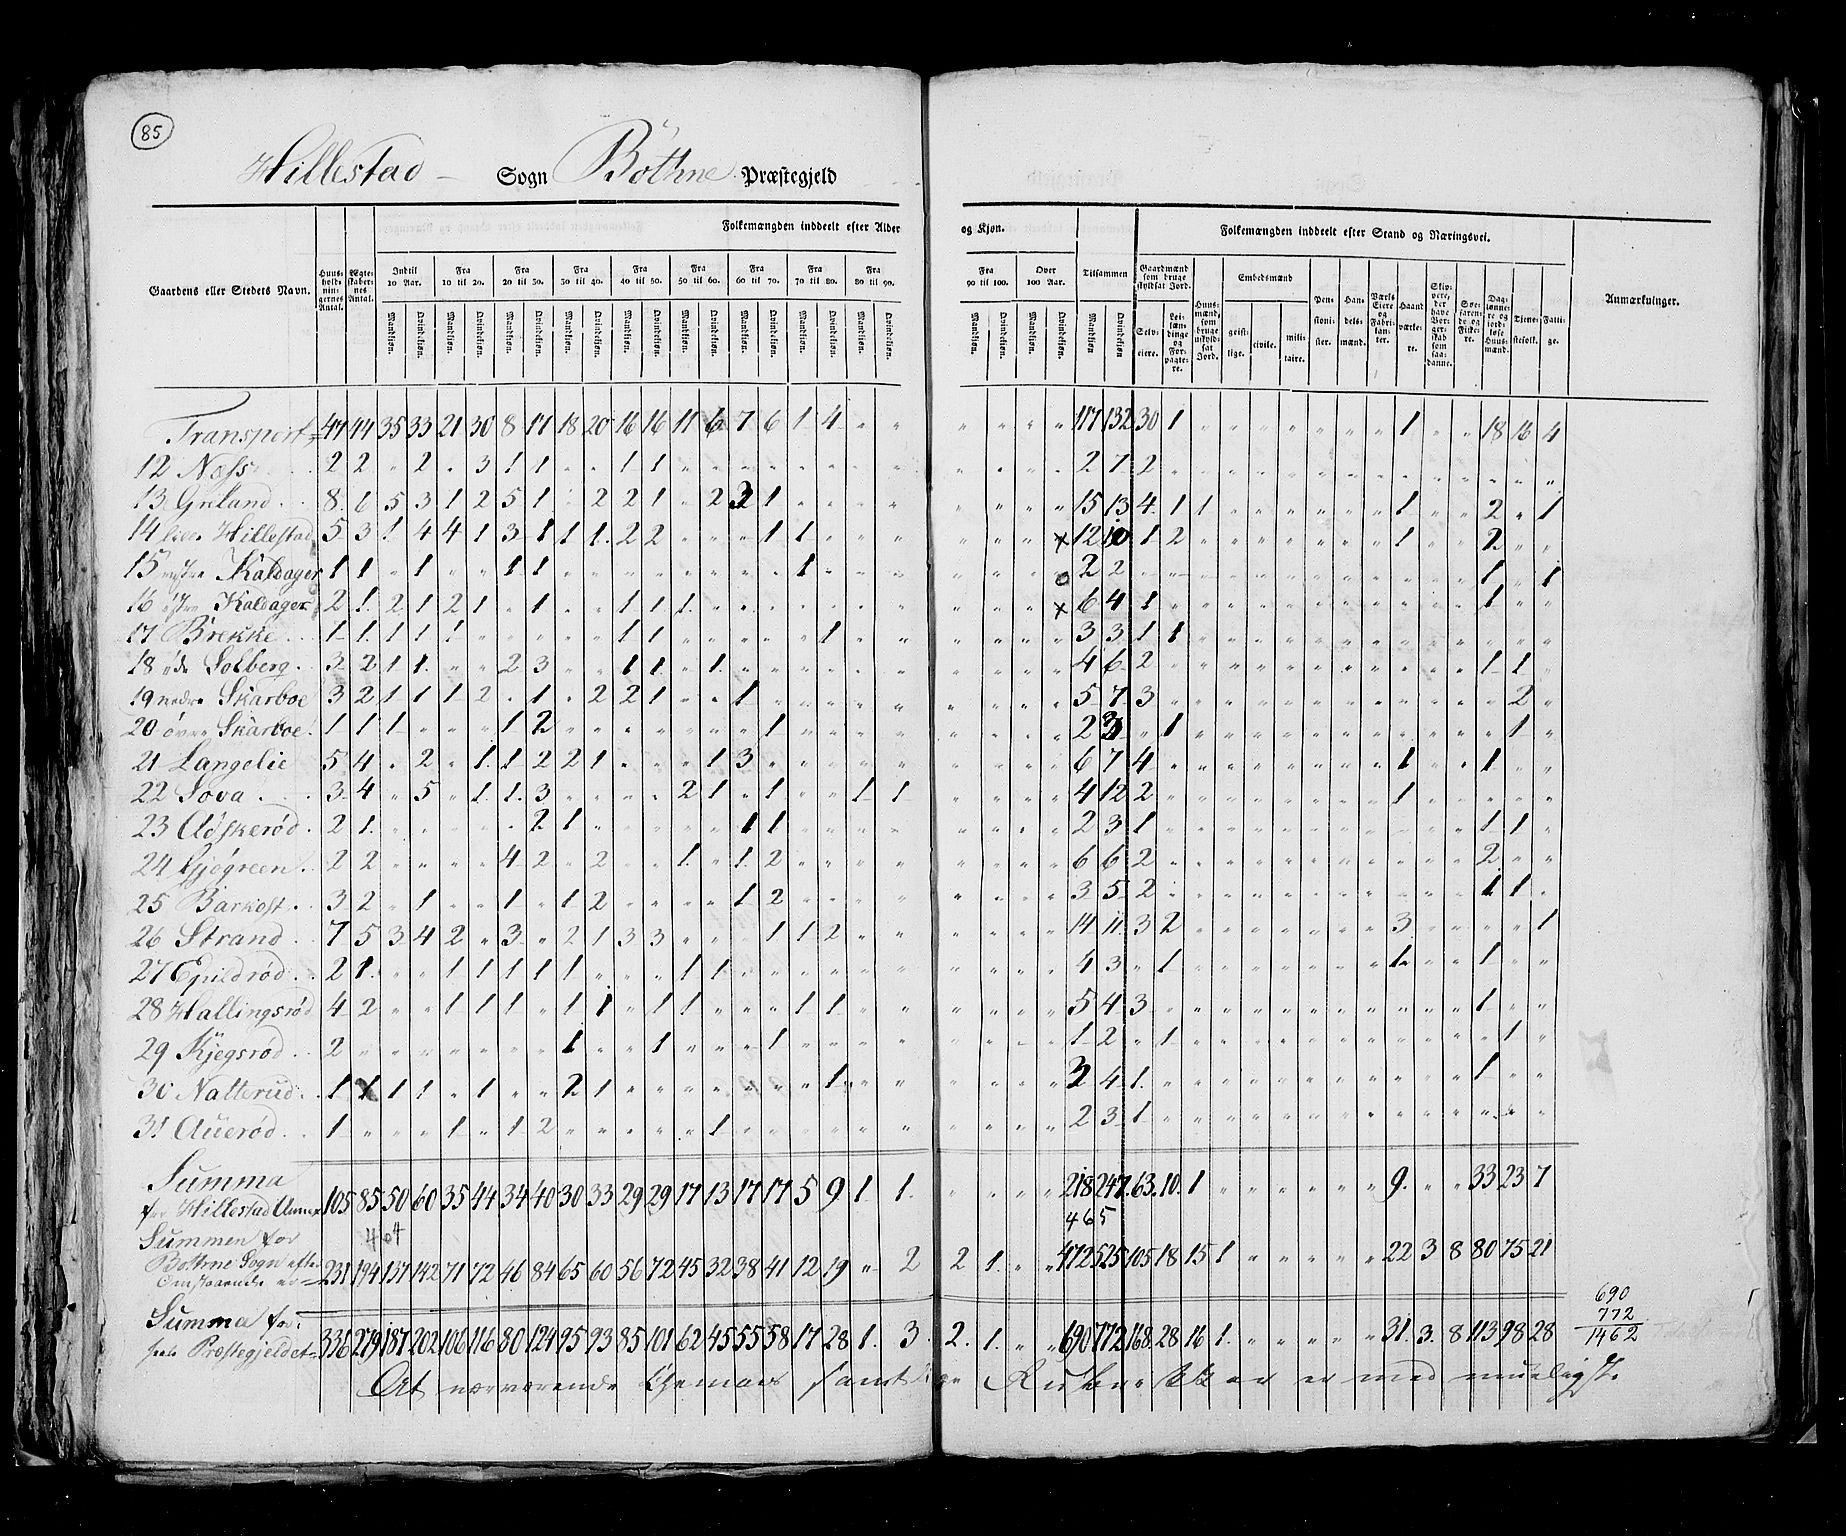 85
Hillestad Sogn Bothne Præstegjeld
Folkemængden inddeelt efter Alder og Kjøn. Folkemængden inddeelt efter Stand og Næringsvei.
Gaardens eller Stedets Navn. Huusholdningernes Antal. Ægteskabernes Antal. Indtil 10 Aar. Fra 10 til 20. Fra 20 til 30. Fra 30 til 40. Fra 40 til 50. Fra 50 til 60. Fra 60 til 70. Fra 70 til 80. Fra 80 til 90. Fra 90 til 100. Over 100 Aar. Tilsammen Gaardmænd som bruge skyldsat Jord. Huusmænd, som bruge uskyldsat Jord. Embedsmænd Pensionister. Handelsmænd. Værks Eiere og Fabrikanter. Haandværkere. Skippere, der have Borgerskab som saadanne. Søefarende og Fiskere. Daglønnere og jordløse Huusmænd. Tjenestefolk. Fattige. Anmærkninger.
Mandkiøn. Qvindekiøn. Selveiere. Leilændinge og Forpagtere. geistlige. civile. militaire.
Transport 47 44 35 33 21 30 8 17 18 20 16 16 11 6 7 6 1 4 " " " " " " 117 132 30 1 1 18 16 4
12 Næss 2 2 " 2 " 3 1 1 " " 1 1 2 7 2
13 Greland 8 6 5 3 1 2 5 1 " 2 2 1 " 2 2 1 15 13 4 1 1 1 2 " 1
14 Hillestad 5 3 1 4 4 1 3 1 1 1 2 2 " " " 1 1 x 12 10 1 2 1 2
15 Kaldager 1 1 " 1 " " 1 1 1 o 2 2 1 " 1
16 østre Kaldager 2 1 2 1 2 1 " 1 " " 1 1 1 x 6 4 1 1
17 Brekke 1 1 1 1 1 1 1 1 3 3 1 1
18 øde Solberg 3 2 1 1 " " 2 3 " " 1 1 " 1 4 6 2 1 1
19 nedre Skarboe 3 2 1 1 1 2 " 1 " 2 2 1 " " 1 5 7 3 2
20 øvre Skarboe 1 1 1 " " " 1 2 1 2 3 " 1 1
21 Langelie 5 4 " 2 " 1 1 2 2 1 " " " 1 3 6 7 4 1 " " 1
22 Sova 3 4 " 5 " 1 1 3 " " " " 2 1 " 1 " " 1 1 4 12 2 1
23 Adskerød 2 1 2 1 1 1 2 3 1 1 1
24 Gjøgreen 2 2 " " " " 4 2 " 2 " " 1 " 1 2 6 6 2 2
25 Barkost 3 2 " 1 " " 1 " 1 2 " " " " 1 2 3 5 2 1 1
26 Strand 7 5 3 4 2 " 3 " 2 1 3 3 " " " 1 1 2 14 11 3 2 3 1
27 Epildrød 2 1 " " 1 1 1 1 1 " " " 1 1 4 3 " 1 1 1
28 Hallingsrød 4 2 " " 1 1 1 " 1 1 " 1 1 " " " 1 1 5 4 3 1
29 Kjegsrød 2 1 " " 1 " " " 1 1 2 " 1 1
30 Nalterud 1 1 1 1 " 1 " " 2 1 1 3 4 1 1
31 Auerød 1 " " " 1 " 1 2 " " " " " 1 2 3 1
Summa
for Hillestad Annex 105 85 50 60 35 44 34 40 30 33 29 29 17 13 17 17 5 9 1 1 " " " " 218 247 63 10 1 9 " " 33 23 7
404 465
Summen for
Bothne Sogn efter
Omstaaende er 231 194 137 142 71 72 46 84 65 60 56 72 45 32 38 41 12 19 " 2 2 1 " " 472 525 105 18 15 1 22 3 8 80 75 21
Summa for
hele Præstegjeldet 336 279 187 202 106 116 80 124 95 93 85 101 62 45 55 58 17 28 1 3 2 1 " " 690 772 168 28 16 1 31 3 8 113 98 28
690
772
1462
At nærværende Schemas samtlige Rubrikker er med mueligst